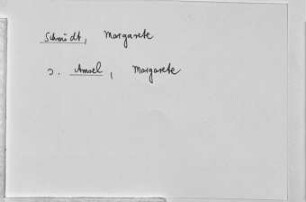 Schmidt, Margarete
s. Amsel, Margarete